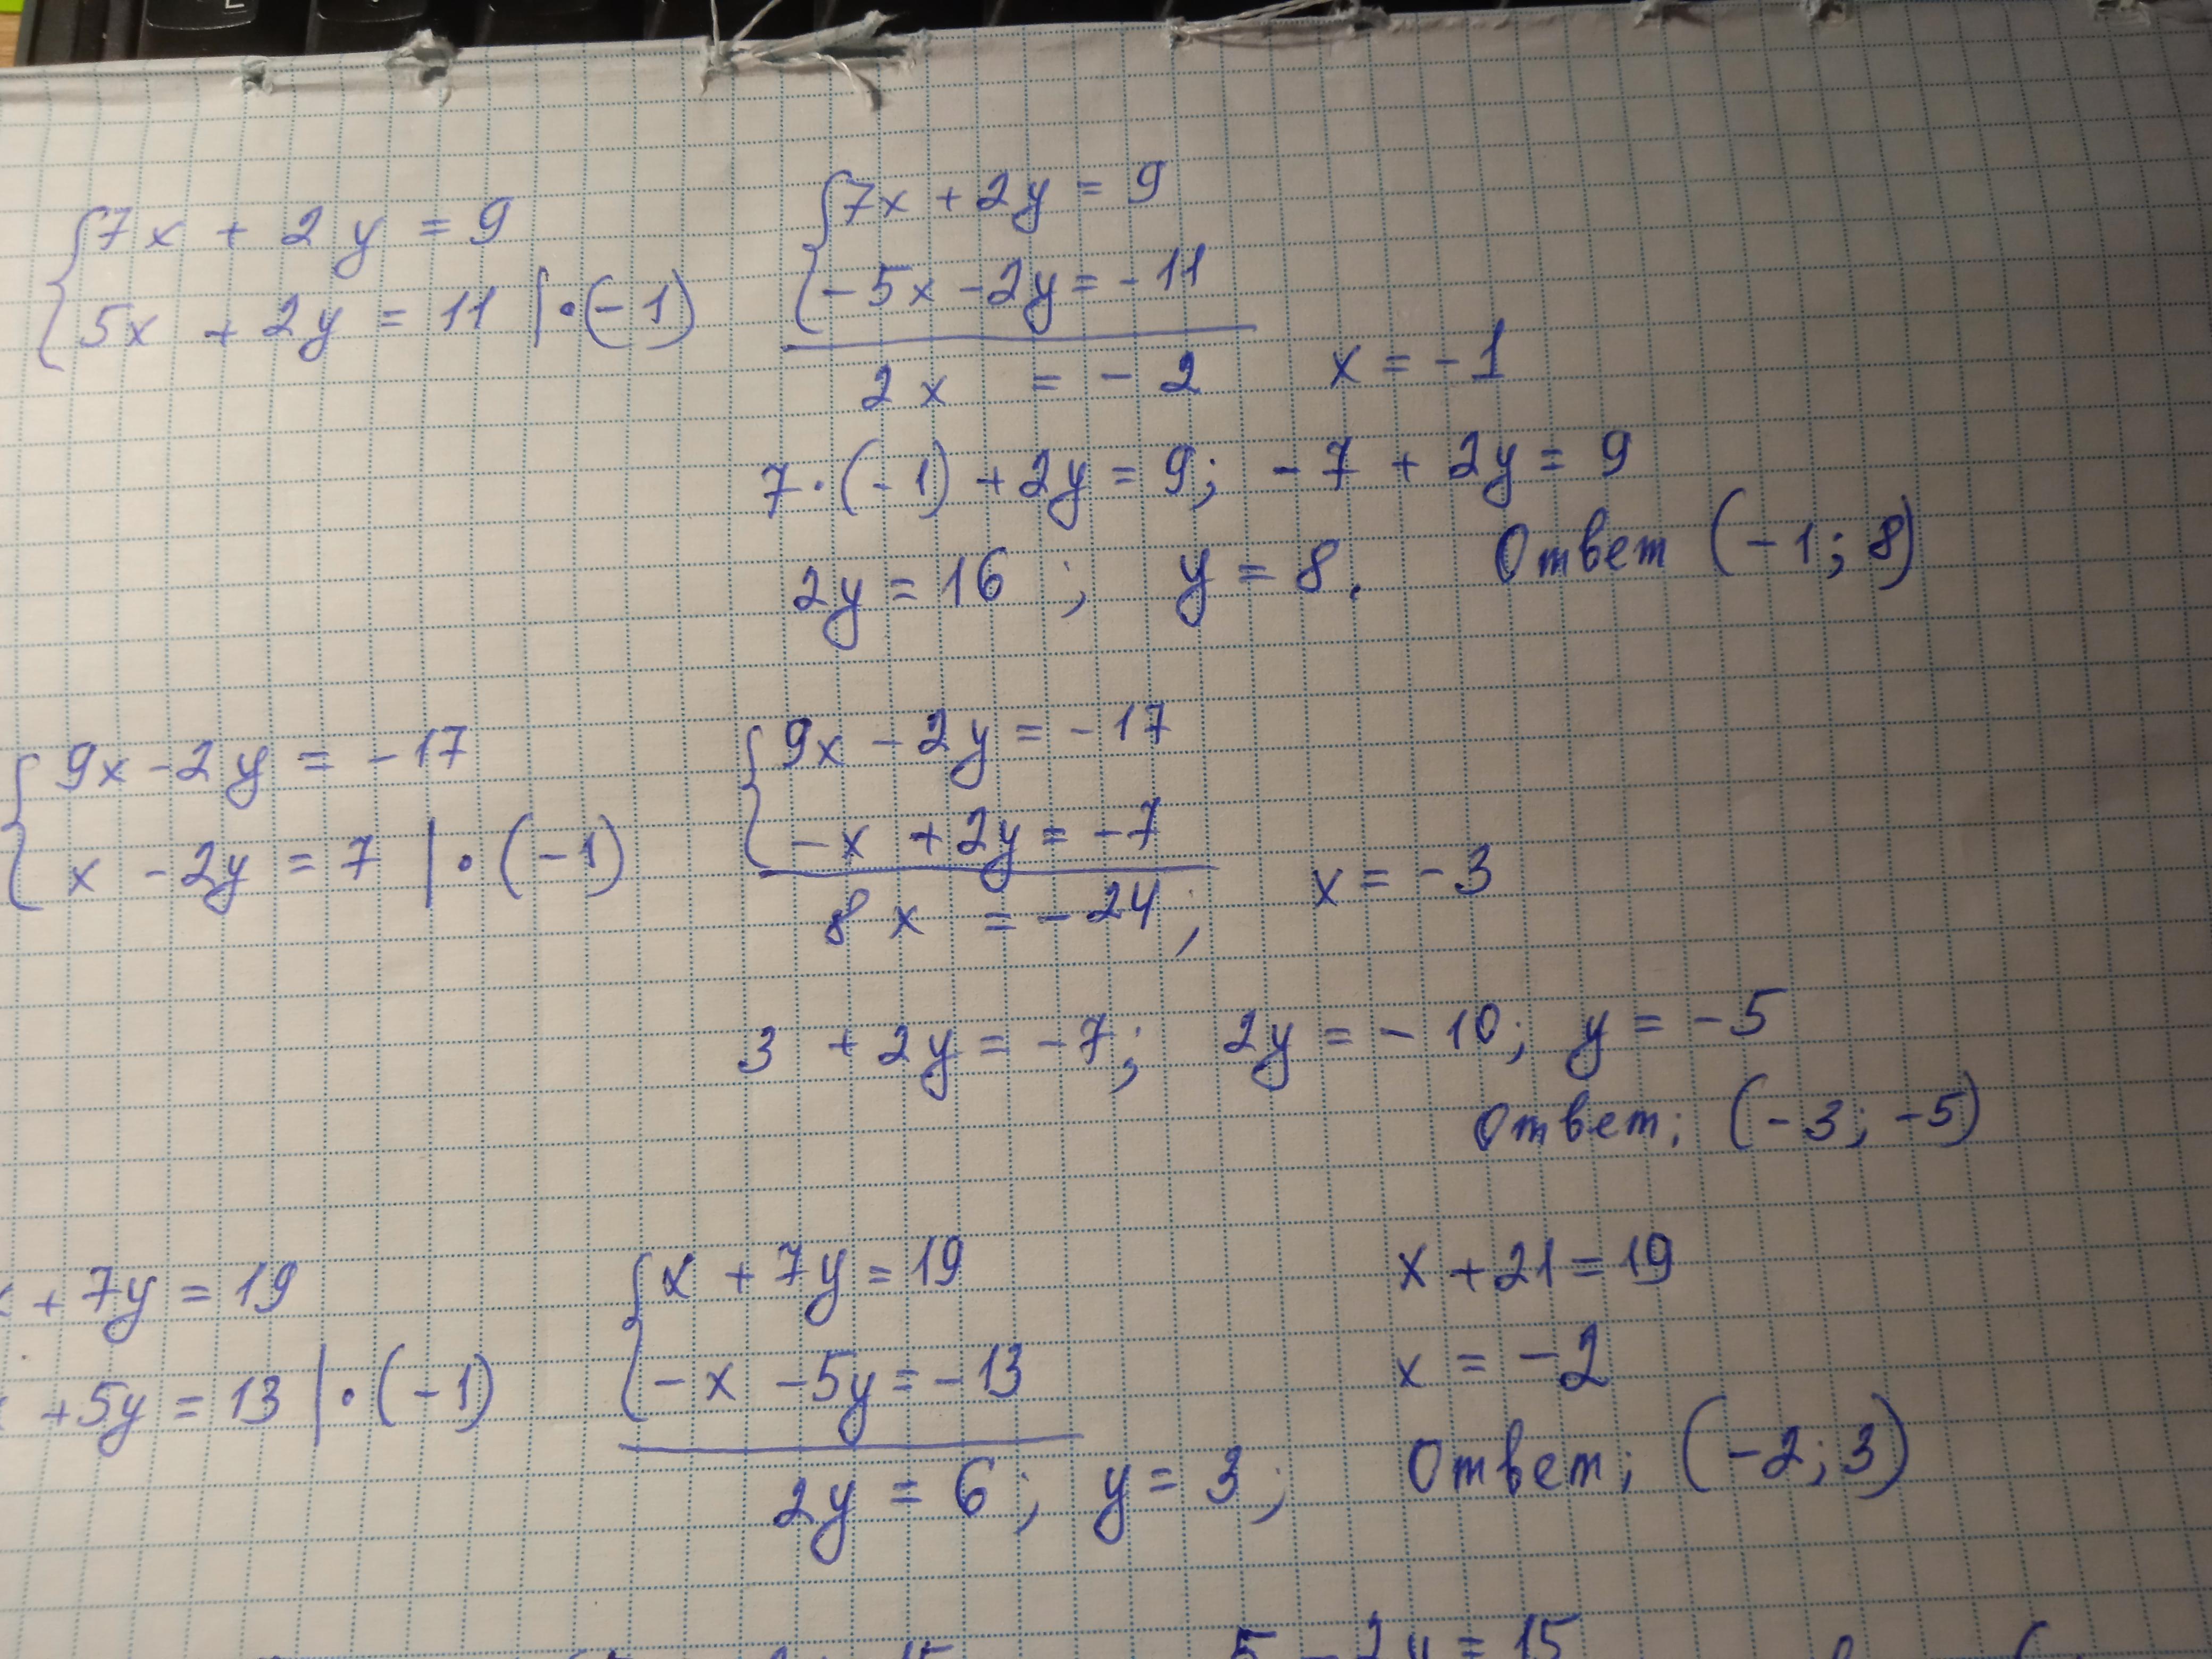 7x + 2y = 9
5x + 2y = 11 | · (-1)
7x + 2y = 9
-5x - 2y = -11
2x = -2 x = -1
7 · (-1) + 2y = 9; -7 + 2y = 9
2y = 16; y = 8. Ответ (-1; 8)
9x - 2y = -17
x - 2y = 7 | · (-1)
9x - 2y = -17
-x + 2y = -7
8x = -24; x = -3
3 + 2y = -7; 2y = -10; y = -5
Ответ: (-3; -5)
x + 7y = 19
+ 5y = 13 | · (-1)
x + 7y = 19
-x - 5y = -13
2y = 6; y = 3;
x + 21 = 19
x = -2
Ответ: (-2; 3)
5 - 2y = 15